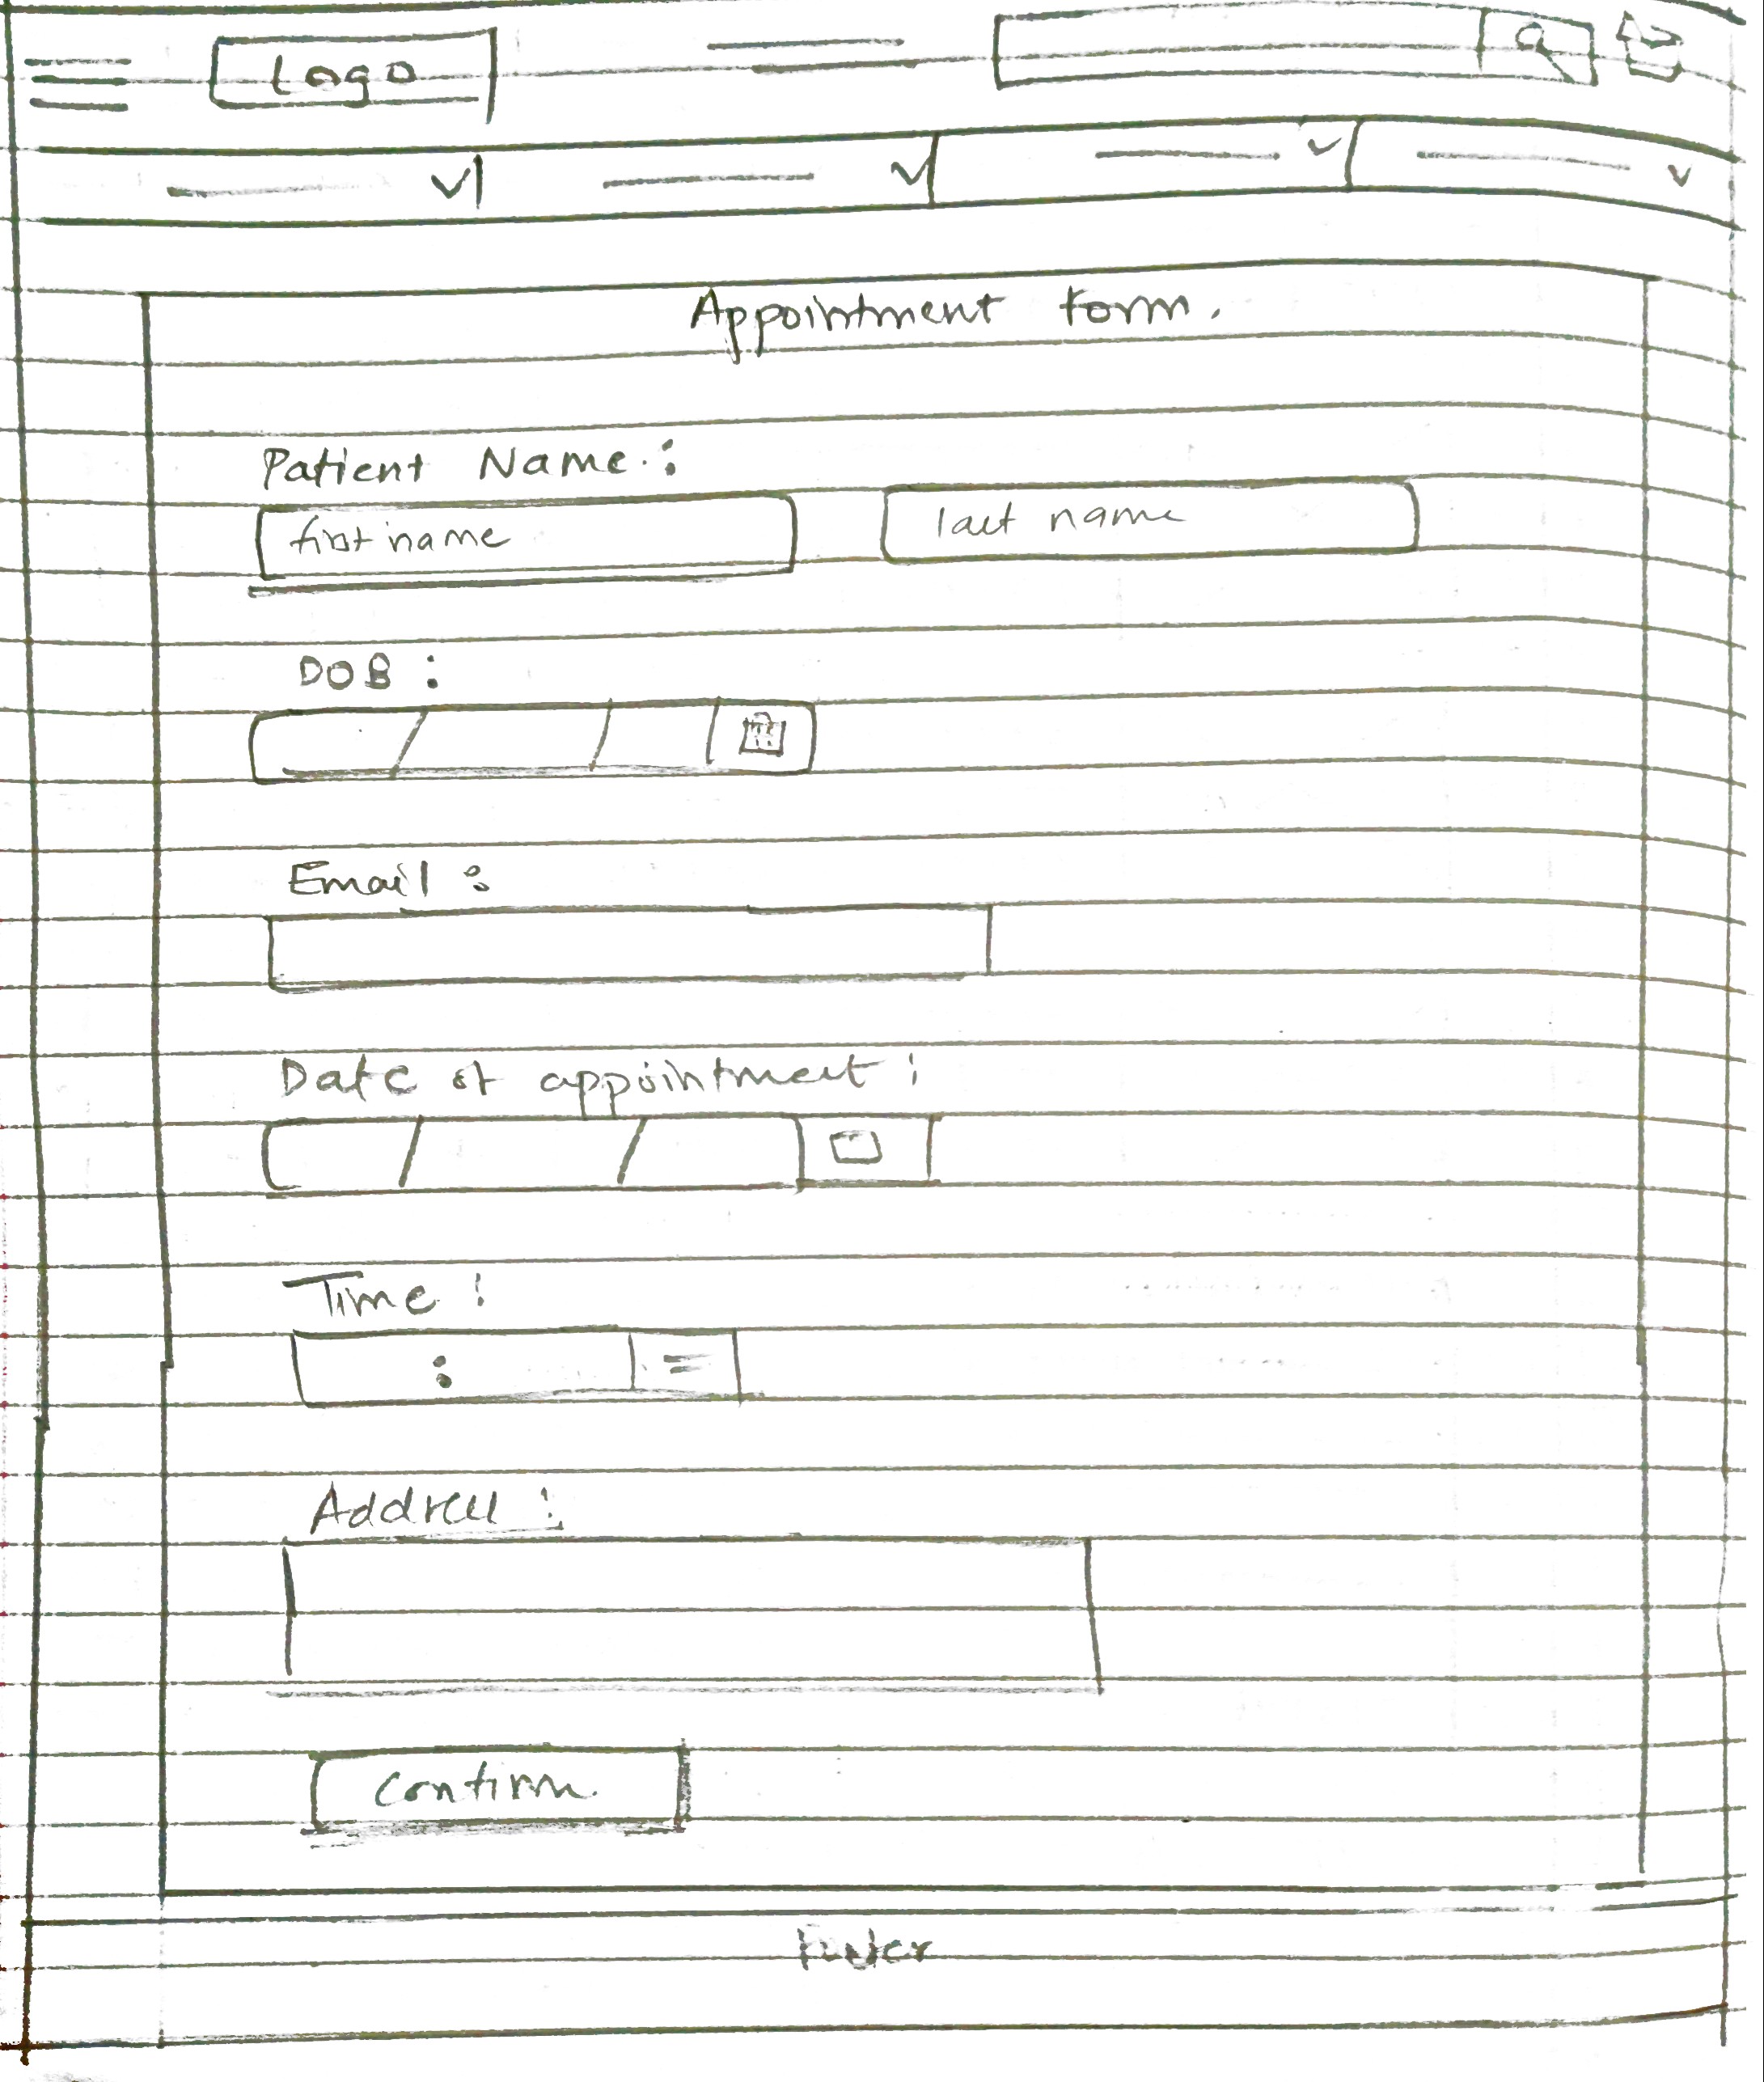 Logo
Appointment form.
Patient Name :
first name
last name
DOB :
Email :
Date of appointment :
Time :
:
Address :
Confirm
Footer